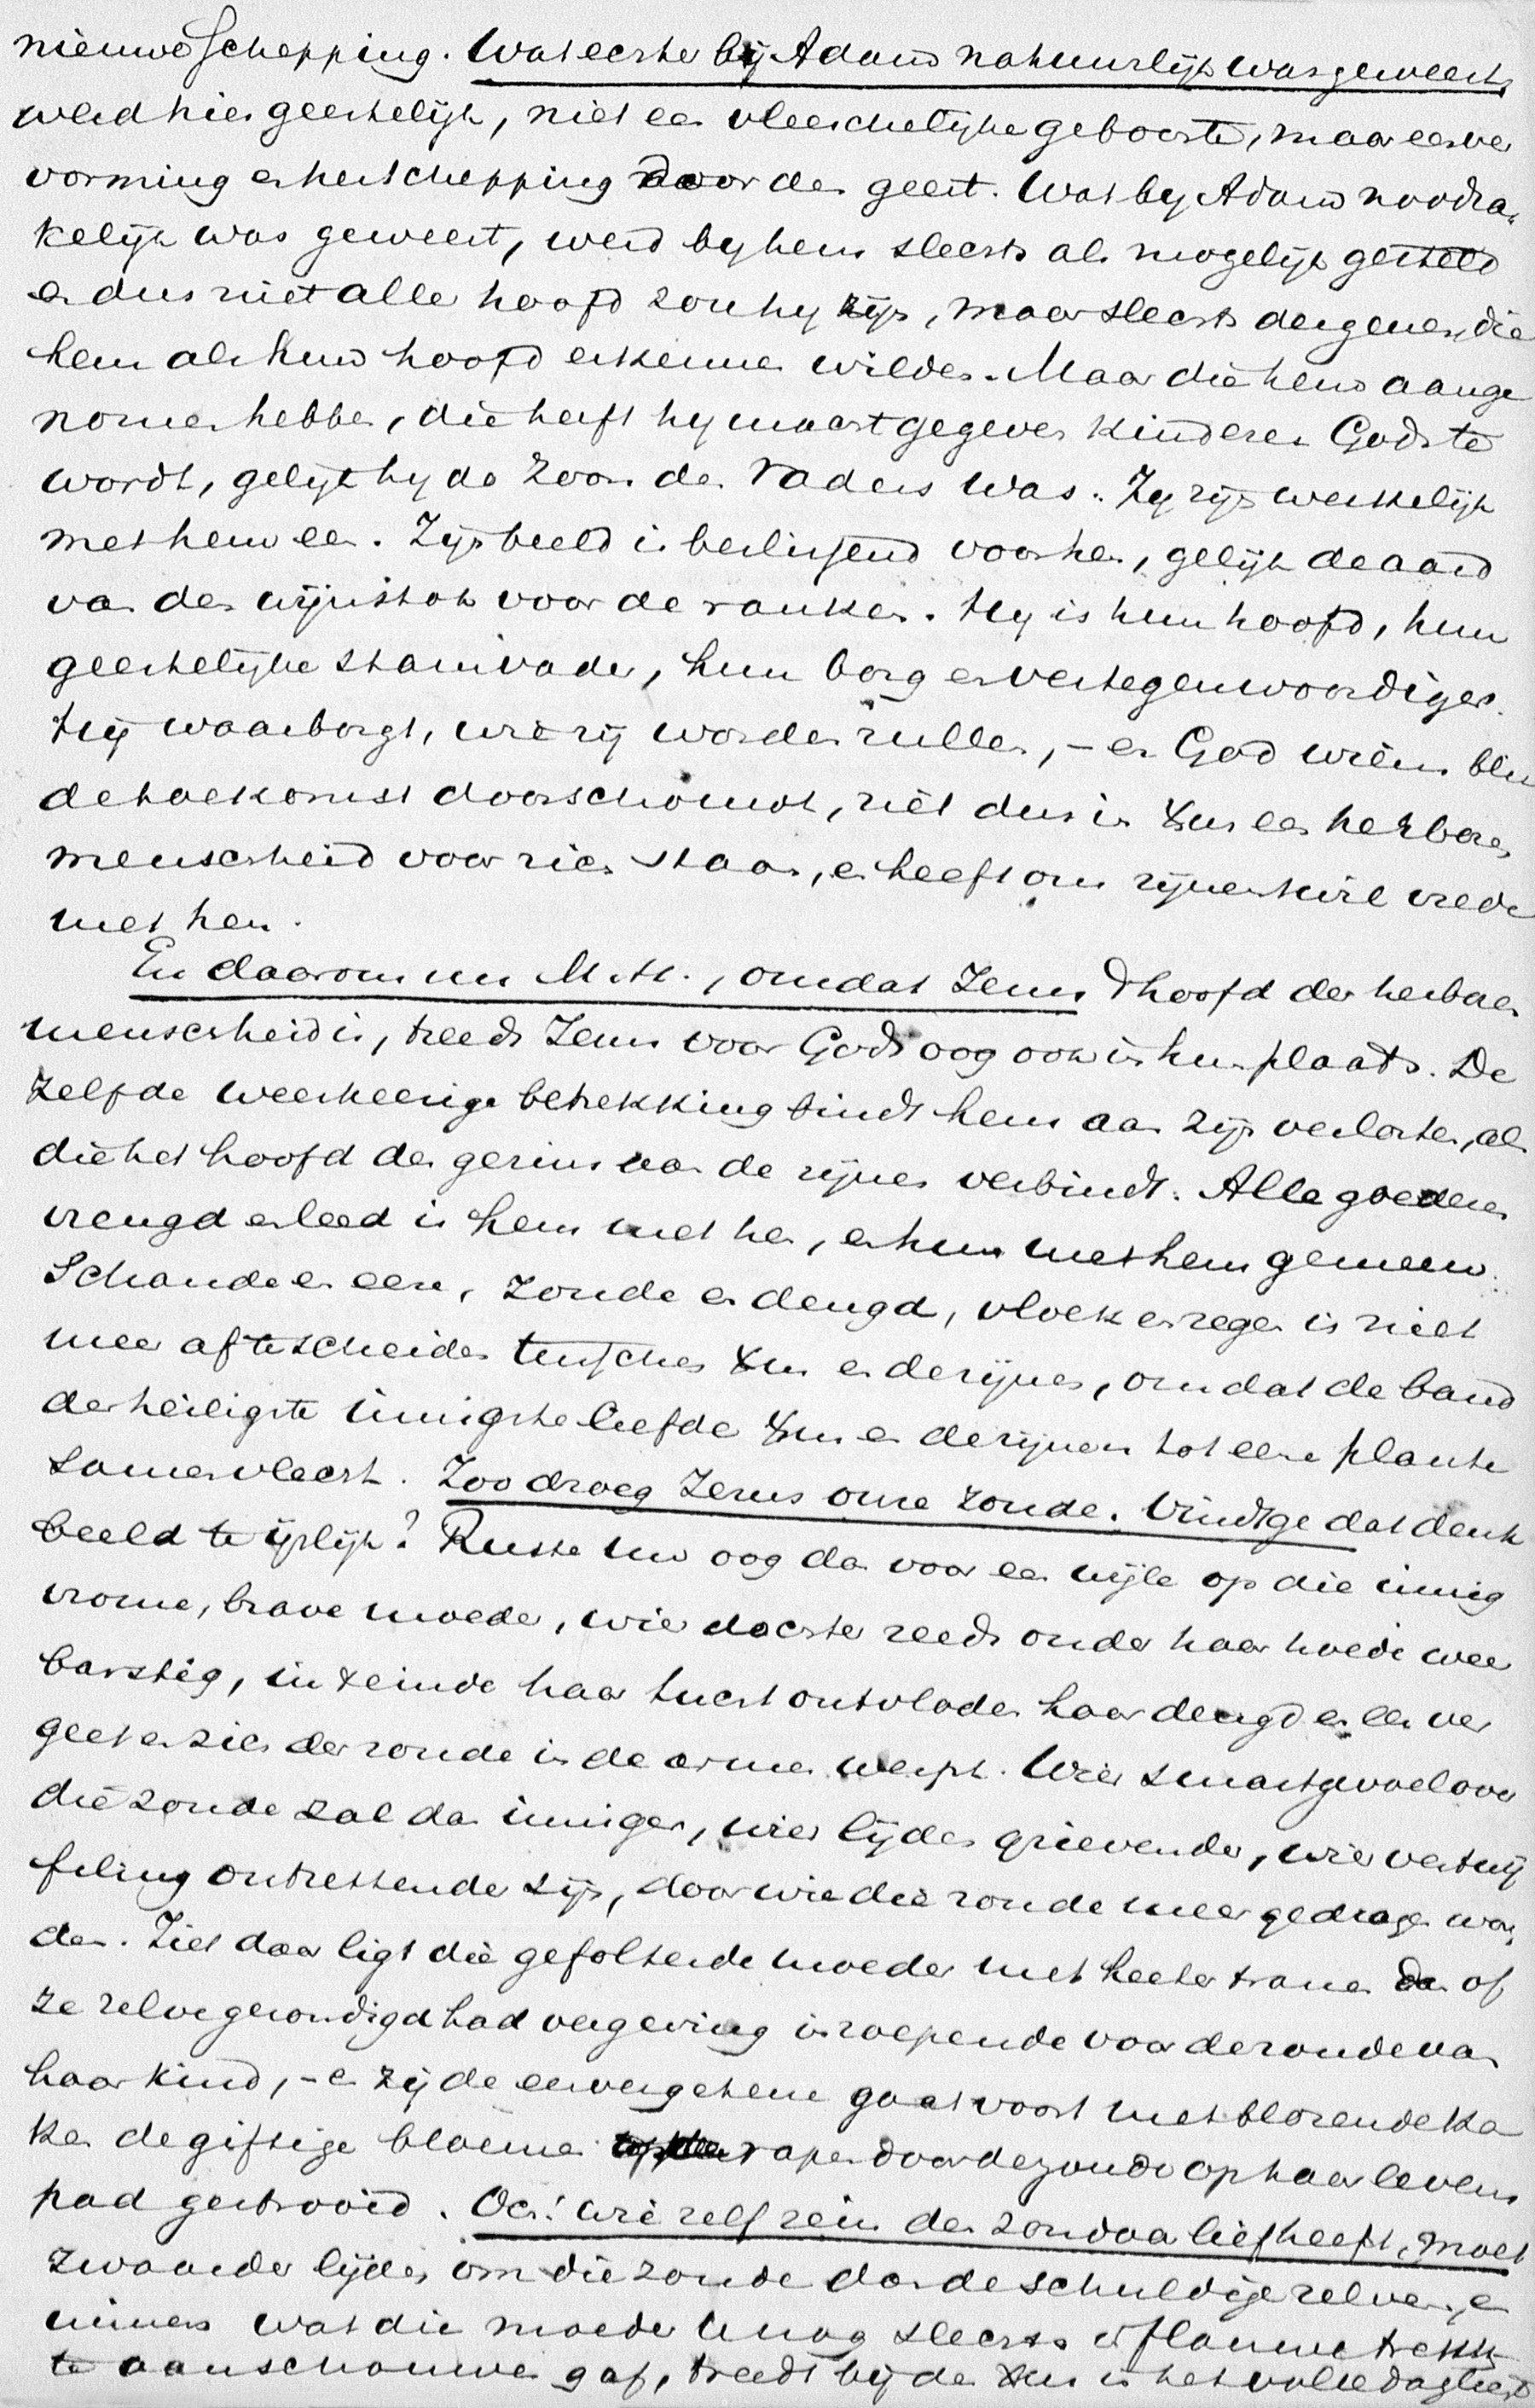 nieuwe Schepping. Wat eerst bij Adam natuurlijk was geweest,
werd hier geestelijk, niet een vleeschelijke geboorte, maar een ver
vorming en herschepping door den geest. Wat by Adam noodza-
kelijk was geweest, werd by hem slechts als mogelijk gesteld
en dus niet aller hoofd zou hy zijn, maar slechts dergenen, die
hem als hun hoofd erkennen wilden. Maar die hem aange
nomen hebben, die heeft hy macht gegeven kinderen Gods te
wordn, gelijk hy de Zoon des Vaders was. Zy zijn werkelijk
met hem een. Zijn beeld is beslissend voor hen, gelijk de aard
van den wijnstok voor de ranken. Hy is hun hoofd, hun
geestelijke stamvader, hun borg en vertegenwoordiger.
Hij waarborgt, wie zij worden zullen, – en God wiens blik
de toekomst doorschouwt, ziet dus in Xus een herboren
menschheid voor zich staan, en heeft om zijnentwil vrede
met hen.
En daarom nu M. H., omdat Jezus 't hoofd der herboren
menschheid is, treedt Jezus voor Gods oog ook in hun plaats. De
zelfde weerkeerige betrekking bindt hem aan zijn verlosten, als
die het hoofd des gezins aan de zijnen verbindt. Alle goederen
vreugd en leed is hem met hen, en hun met hem gemeen.
Schande en eere, zonde en deugd, vloek en zegen is niet
meer af te scheiden tusschen Xus en de zijnen, omdat de band
der heiligste innigste liefde Xus en de zijnen tot eene plante
samenvlecht. Zoo droeg Jezus onze zonde. Vindt ge dat denk
beeld te ijslijk? Ruste uw oog dan voor een wijle op die innig
vrome, brave moeder, wier dochter reeds onder haar hoede weer
barstig, in 't einde haar tucht ontvloden haar deugd en eer ver
geet en zich der zonde in de armen werpt. Wier smartgevoel over
die zonde zal dan inniger, wier lijden grievender, wier vertwij
feling ontzettender zijn, door wie die zonde meer gedragen wor
den. Ziet daar ligt die gefolterde moeder met heete tranen als of
ze zelve gezondigd had vergeving inroepende voor de zonde van
haar kind, – en zij de eervergetene gaat voort met blozende ka
ken de giftige bloemen rapen door de zonde op haar levens
pad gestrooid. Och! wie zelf rein den zondaar liefheeft, moet
zwaarder lijden om die zonde dan de schuldige zelve, en
immers wat die moeder U nog slechts in flauwe trekk
te aanschouwen gaf, treedt bij den Xus in het volle daglicht